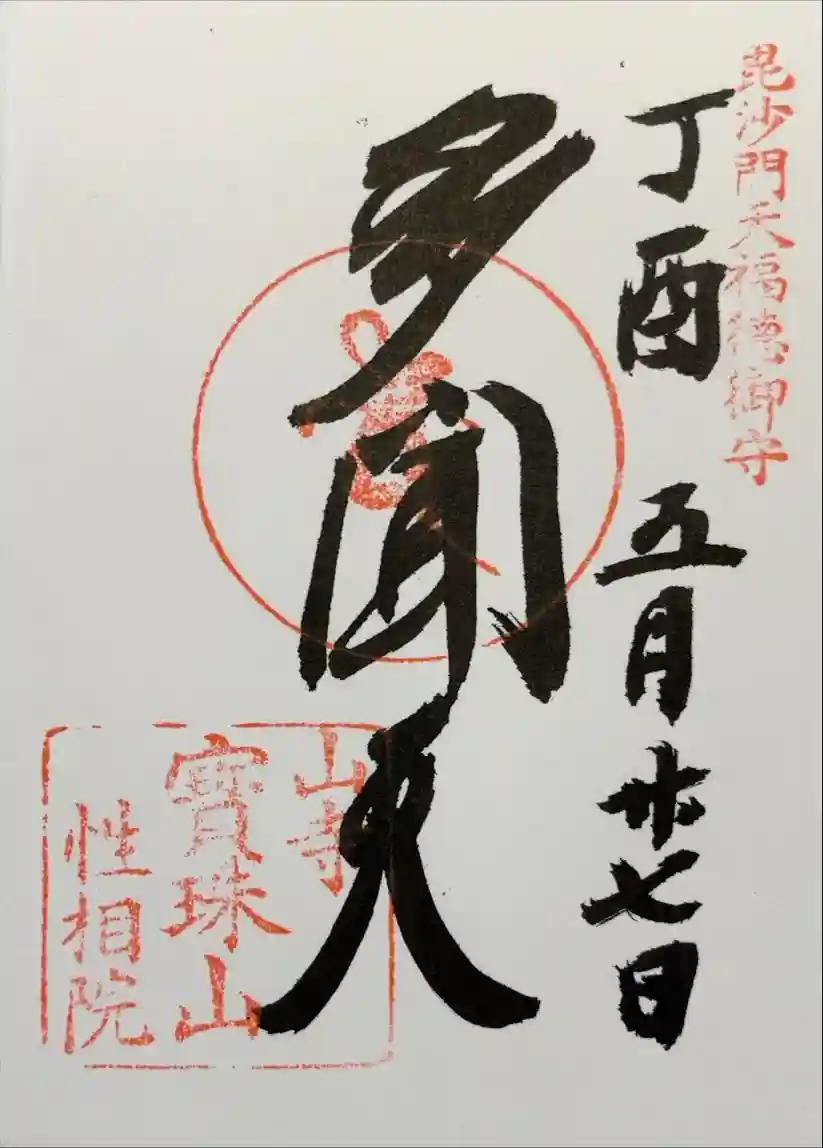 毘沙門天福徳御守
丁酉 五月廿七日
多聞天
山寺
寶珠山
性相院